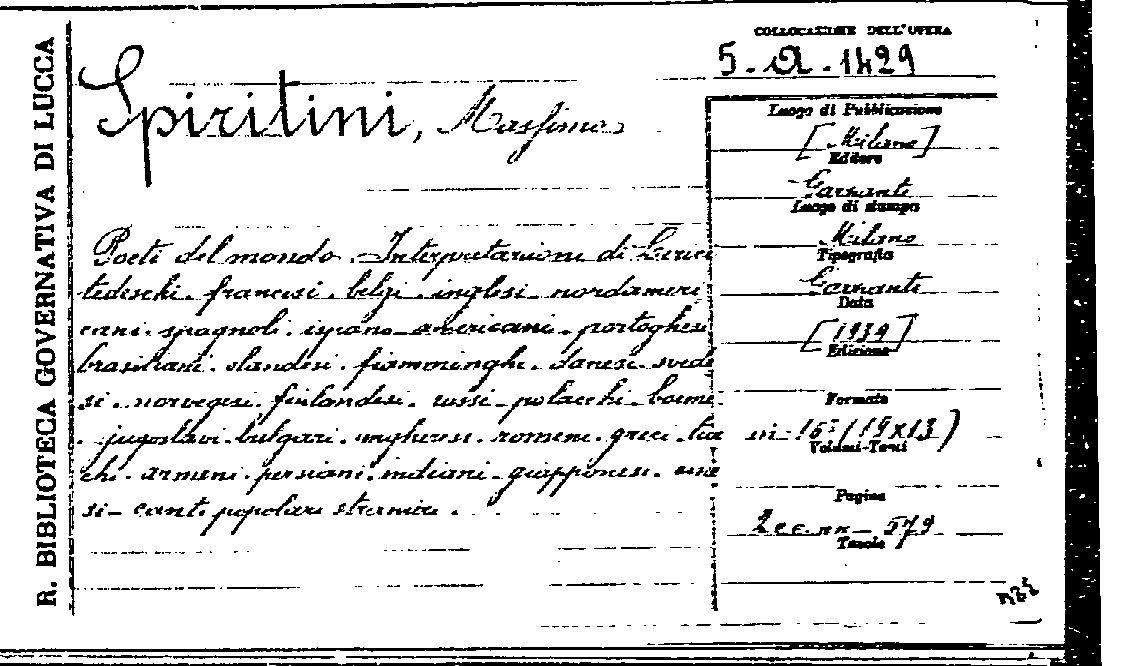 R. BIBLIOTECA GOVERNATIVA DI LUCCA
COLLOCAZIONE DELL'OPERA
5. A. 1429
Spiritini, Massimo
Luogo di Pubblicazione
[Milano]
Editore
Garzanti
Luogo di stampa
Milano
Tipografia
Garzanti
Data
[1939]
Edizione
Formato
in 16° (19x13)
Volumi-Tomi
Pagine
2 cc. nn - 579
Tavole
Poeti del mondo. Interpretazioni di Lirici
tedeschi. francesi. belgi. inglesi. nordameri
cani. spagnoli. ispano-americani. portoghesi
brasiliani. olandesi. fiamminghi. danesi. svede
si. norvegesi. finlandesi. russi. polacchi. boemi.
jugoslavi. bulgari. ungheresi. romeni. greci. tur
chi. armeni. persiani. indiani. giapponesi. cine
si - canti popolari stranieri.